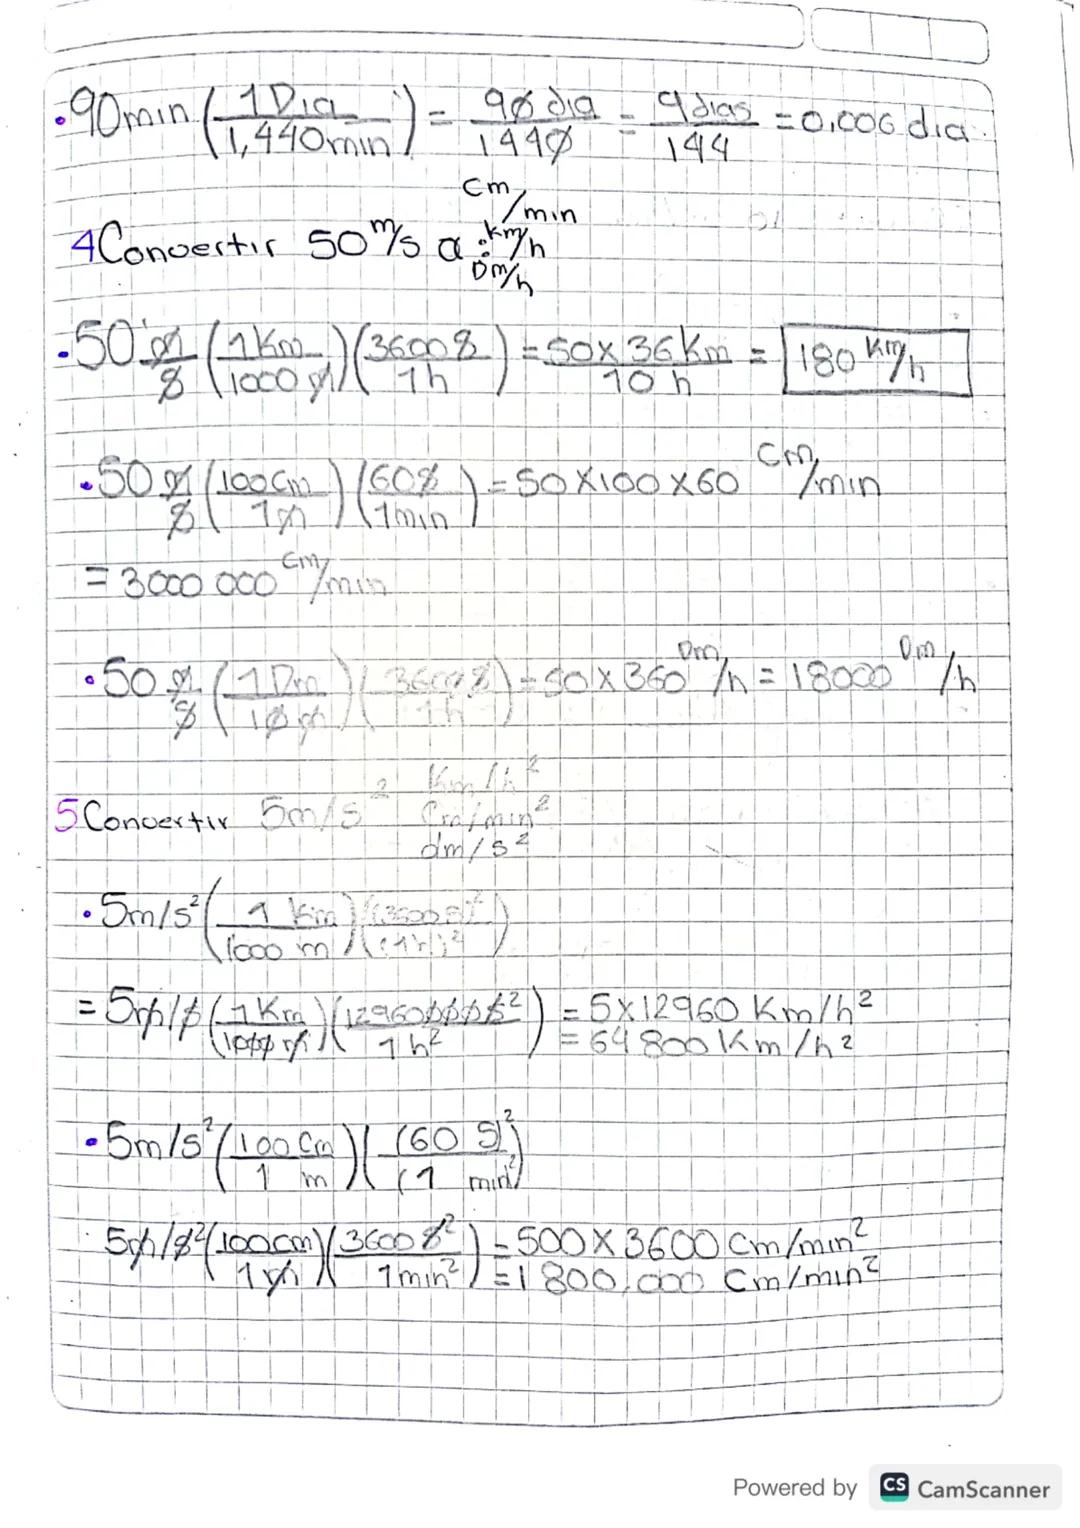 .90min (1 Dia / 1,440min) = 90 dia / 1440 = 9 dias / 144 = 0.006 dia.
4 Convertir 50 m/s a : cm/min
Km/h
Dm/h
.50 m/s (1 Km / 1000 m) (3600 s / 1 h) = 50 x 36 Km / 10 h = 180 Km/h
.50 m/s (100 Cm / 1 m) (60 s / 1 min) = 50 X 100 X 60 Cm/min
= 3000 000 Cm/min
.50 m/s (1 Dm / 10 m) (3600 s / 1 h) = 50 X 360 Dm/h = 18000 Dm/h
5 Convertir 5m/s² Km/h²
Cm/min²
dm/s²
.5m/s² (1 Km / 1000 m) ((3600 s)² / (1h)²)
= 5m/s (1 Km / 1000 m) (12960000 s² / 1 h²) = 5x12960 Km/h²
= 64 800 Km/h²
.5m/s² (100 Cm / 1 m) ((60 S)² / (1 min)²)
5m/s² (100cm / 1 m) (3600 s² / 1 min²) = 500 X 3600 Cm/min²
= 1 800,000 Cm/min²
Powered by CS CamScanner